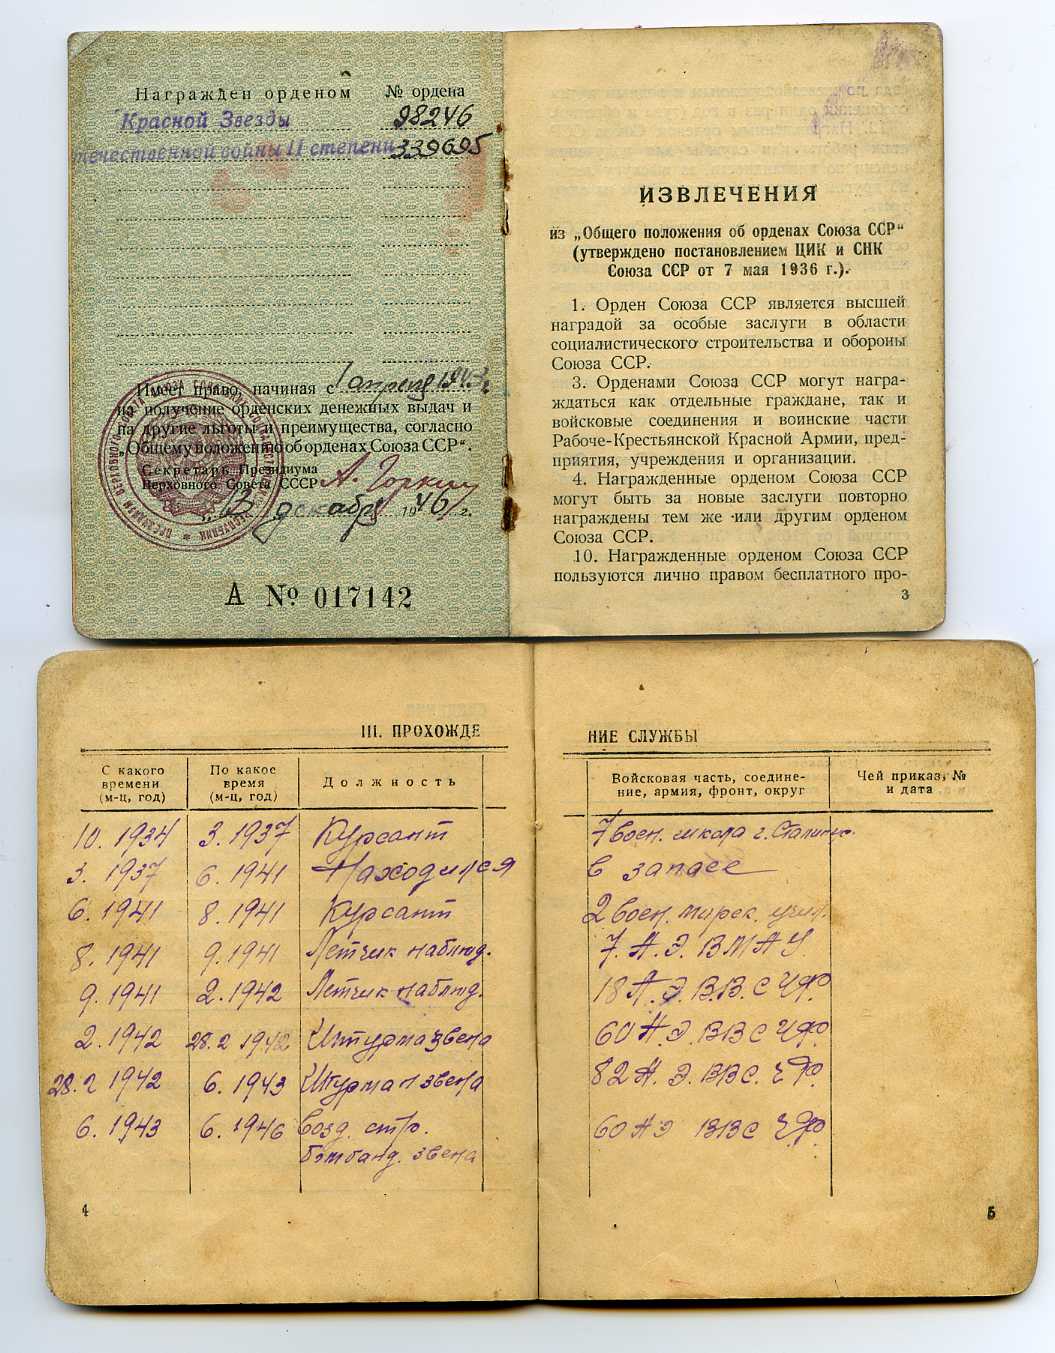 Награжден орденом № ордена
Красной Звезды 98246
течественной войны II степени 339695
Имеет право, начиная с 1 апреля 1943 г.
на получение орденских денежных выдач и
на другие льготы и преимущества, согласно
„Общему положению об орденах Союза ССР“.
Секретарь Президиума
Верховного Совета СССР А. Горкин
„13 декабря 1946 г.
А № 017142
ИЗВЛЕЧЕНИЯ
из „Общего положения об орденах Союза ССР“
(утверждено постановлением ЦИК и СНК
Союза ССР от 7 мая 1936 г.).
1. Орден Союза ССР является высшей
наградой за особые заслуги в области
социалистического строительства и обороны
Союза ССР.
3. Орденами Союза ССР могут награ-
ждаться как отдельные граждане, так и
войсковые соединения и воинские части
Рабоче-Крестьянской Красной Армии, пред-
приятия, учреждения и организации.
4. Награжденные орденом Союза ССР
могут быть за новые заслуги повторно
награждены тем же или другим орденом
Союза ССР.
10. Награжденные орденом Союза ССР
пользуются лично правом бесплатного про-
3
III. ПРОХОЖДЕ НИЕ СЛУЖБЫ
С какого времени (м-ц, год) По какое время (м-ц, год) Должность Войсковая часть, соедине-ние, армия, фронт, округ Чей приказ, № и дата
10. 1934 3. 1937 Курсант 7 воен. школа г. Сталингр.
3. 1937 6. 1941 Находился в запасе
6. 1941 8. 1941 Курсант 2 воен.
8. 1941 9. 1941 Летчик наблюд. 7. А. Э. ВМАУ.
9. 1941 2. 1942 Летчик наблюд. 18 А. Э. В.В.С ЧФ
2. 1942 28. 2 1942 Штурман звена 60 А. Э. ВВС ЧФ.
28. 2 1942 6. 1943 Штурман звена 82 А. Э. ВВС. ЧФ.
6. 1943 6. 1946 Возд. стр. 60 АЭ ВВС ЧФ
бомбанд. звена
4 5